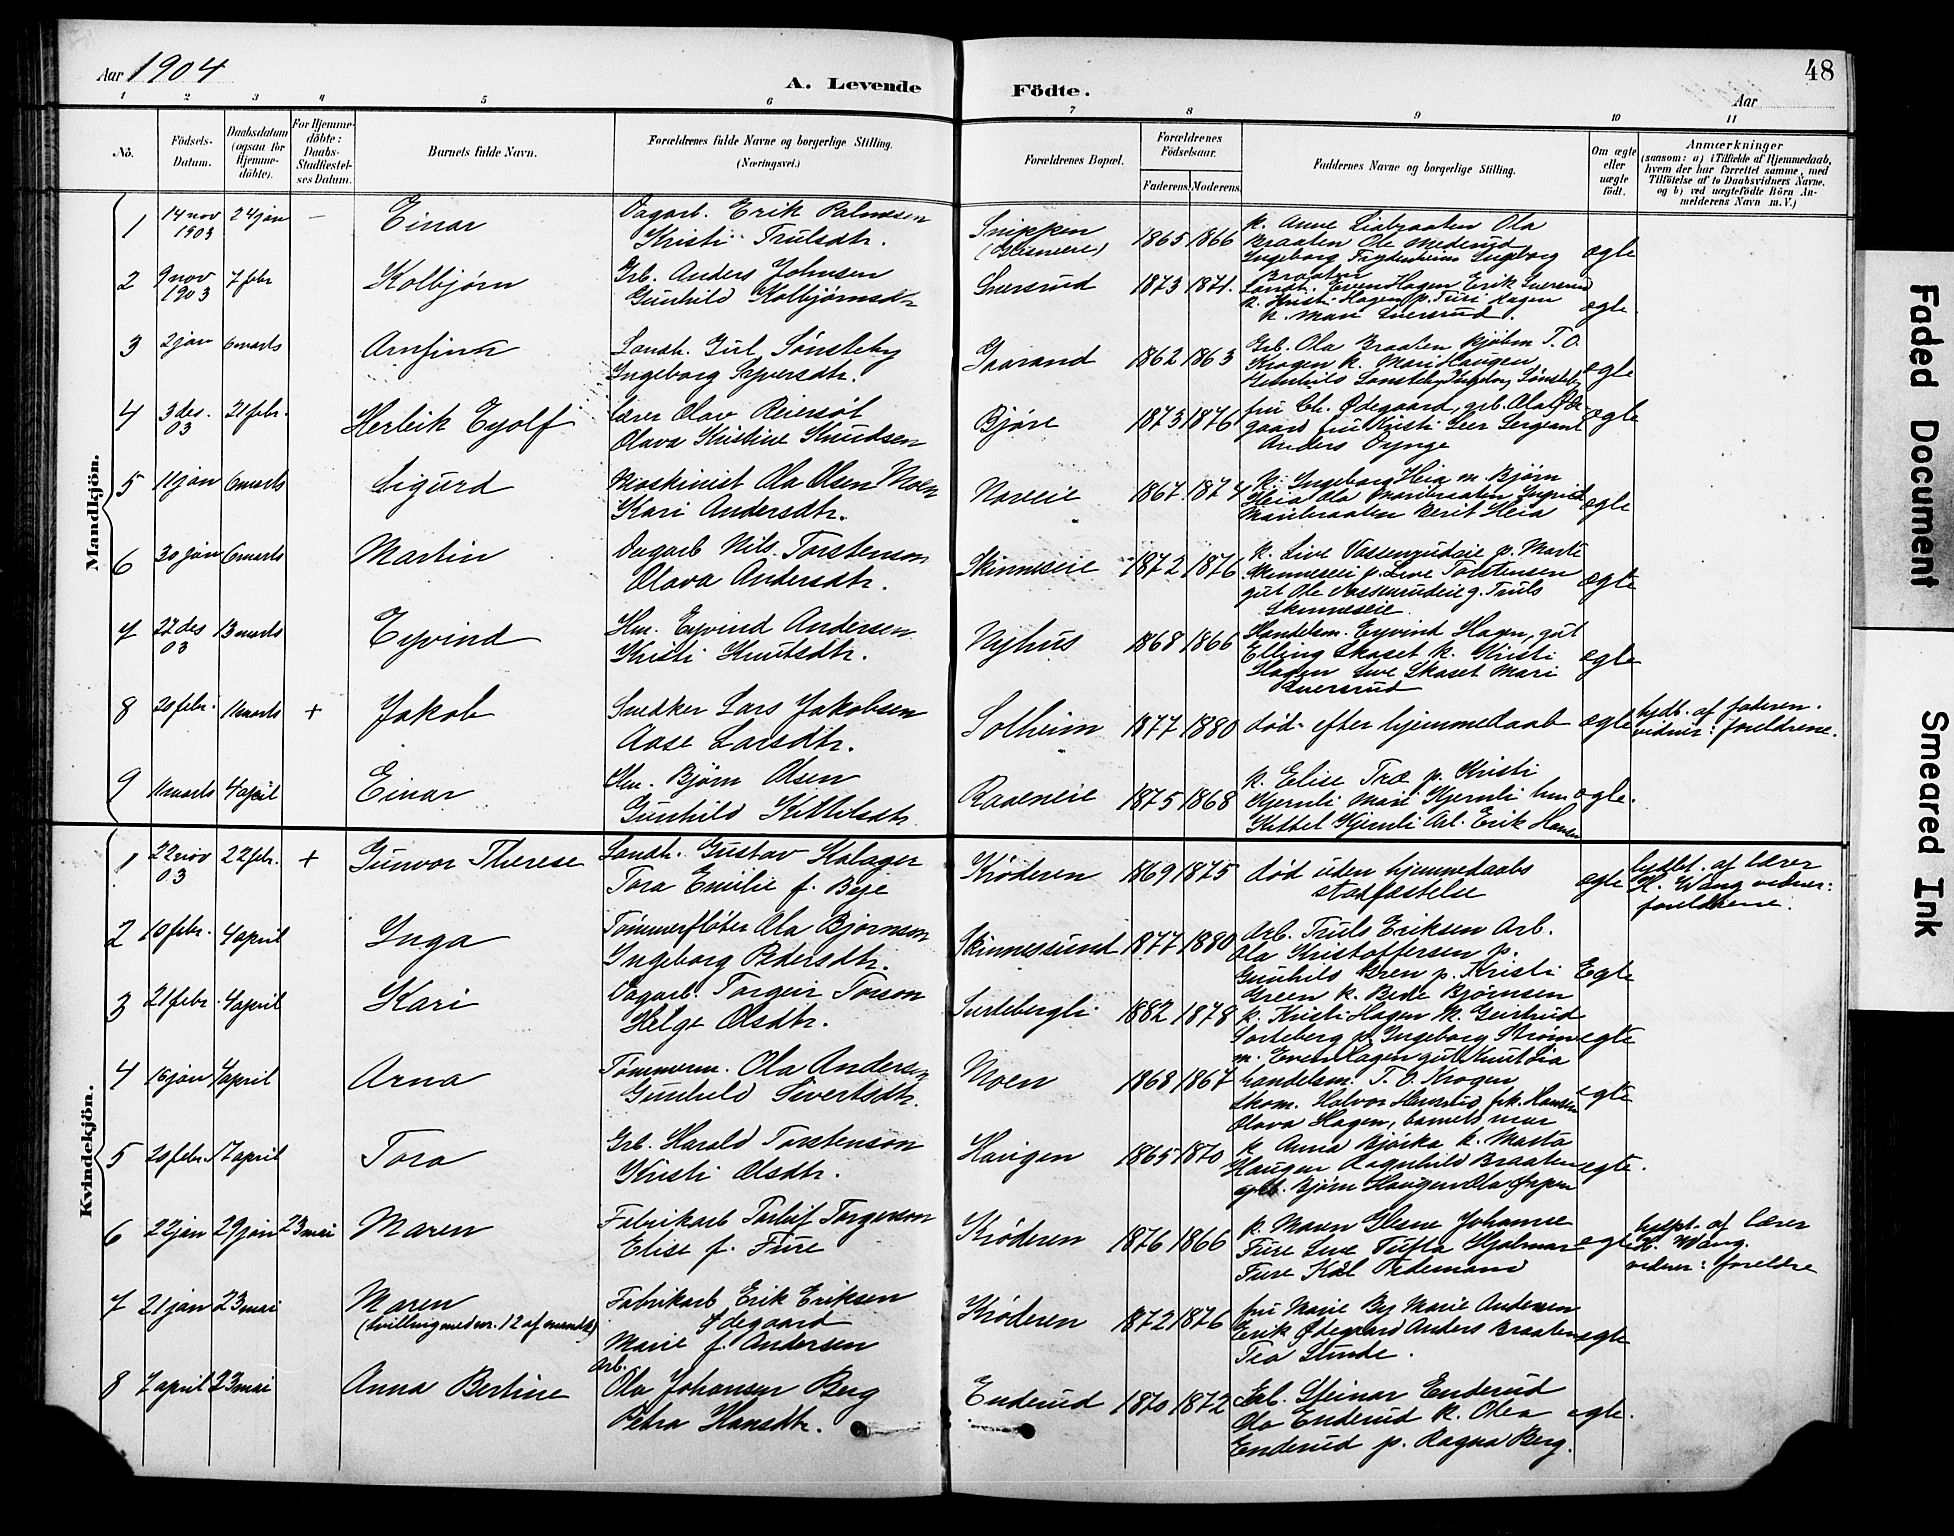 48
Aar 1904
A. Levende Födte.
Aar
1 2 3 4 5 6 7 8 9 10 11
No.
Födsels-Datum.
Daabsdatum (ogsaa for Hjemme-döbte).
For Hjemme-döbte: Daabs-Stadfæstel-ses Datum.
Barnets fulde Navn.
Forældrenes fulde Navne og borgerlige Stilling. (Næringsvei.)
Forældrenes Bopæl.
Forældrenes Födselsaar.
Faderens. Moderens.
Faddernes Navne og borgerlige Stilling.
Om ægte eller uægte födt.
Anmærkninger
(saasom: a) i Tilfælde af Hjemmedaab, hvem der har forrettet samme, med Tilföielse af to Daabsvidners Navne. og b) ved uægtefödte Börn An-melderens Navn m. V.)
Mandkjön.
1 14 nov 1903 24 jan — Einar
Dagarb. Erik Palmesen
Kristi Trulsdtr.
Snippen 1865 1866
k. Anne Liabraaten Ola
Braaten Ole Mederud
Ingeborg
Braaten
ægte
2 9 nov 1903 7 febr Kolbjørn
Grb. Anders Johnsen
Gunhild Kolbjørnsdtr
Sversrud 1873 1871.
Landh. Even Hagen Erik Sversrud
k. Kristi Hagen p. Turi Hagen
k. Mari Sversrud.
ægte.
3 2 jan 6 marts Arnfinn
Landh. Gul Sønsteby
Ingeborg Syversdtr.
Gaarand 1862 1863
Grb. Ola Braaten kjøbm T. O.
Krogen k. Mari Haugen
Sønsteby Ingeborg Sønsteby
ægte
4 3 des. 03 21 febr. Herleik Eyolf
Lærer Olav Reiersøl
Olava Kristine Knudsen
Bjøre 1873 1876
fru Ch. Ødegaard, grb. Ola Øde
gaard fru Kristi Leer Sergeant
Anders Dynge
ægte
5 11 jan 6 marts Sigurd
Maskinist Ola Olsen Moen
Kari Andersdtr.
Noreeie 1867 1874
k. Ingeborg Heia m. Bjørn
Heia Ola Maribraaten Ingrid
Maribraaten Berit Heia
ægte
6 30 jan 6 marts Martin
Dagarb Nils Torstenson
Olava Andersdtr.
Skinneseie 1872 1876
k. Live Vassenrudeie p. Marte
Skinneseie p. Live Torstensen
gut Ole Vassenrudeie g. Truls
Skinneseie.
ægte
7 27 des 03 13 marts Eyvind
Hm. Eyvind Andersen
Kristi Knutsdtr.
Nyhus 1868 1866
Handelsm. Eyvind Hagen, gut
Elling Skaset k. Kristi
Hagen Live Skaset Mari
ægte
8 20 febr. 1 marts + Jakob
Snedker Lars Jakobsen
Aase Larsdtr.
Solheim 1877 1880
død efter hjemmedaab
ægte
hjdb. af faderen.
vidner: foreldrene.
9 1 marts 4 april Einar
Hm. Bjørn Olsen
Gunhild Kittilsdtr.
Raaeneie 1875 1868
k. Elise Træ p. Kristi
Kjernli Mari Kjernli hm
Kittel Kjernli Arb. Erik Hansen
ægte.
Kvindekjön.
1 22 nov 03 22 febr. + Gunvor Therese
Landh. Gustav Kalager
Tora Emilie f. Beje
Krøderen 1869 1875
død uden hjemmedaabs
stadfæstelse
ægte
hjdbt. af lærer
K. Wang vidner:
foreldrene.
2 10 febr. 4 april Inga
Tømmerfløter Ola Bjørnson
Ingeborg Pedersdtr.
Skinnessund 1877 1880
Arb. Truls Eriksen Arb.
Ola Kristoffersen p.
Gunhild Gren p. Kristi
Green k. Bede Bjørnsen
Egte
3 21 febr. 4 april Kari
Dagarb. Torgeir Torson
Helge Olsdtr.
Surtebergli 1882 1878
k. Kristi Hagen k. Gurtrud
Sorteberg p. Ingeborg Strøm
m. Even Hagen gut Knut Lia
egte
4 16 jan 4 april Arna
Tømmerm. Ola Andersen
Gunhild Sivertsdtr.
Moen 1868 1867
handelsm. T. O. Krogen
Skom. Halvor Hemsrud frk. Hansen
Olava Hagen, barnets mor
egte
5 20 febr. 17 april Tora
Grb. Harald Torstenson
Kristi Olsdtr.
Haugen 1865 1870
k. Anna Bjørka k. Marta
Haugen Ragnhild Braaten
Bjørn Haugen Ola
egte.
6 22 jan 29 jan 23 mai Maren
Fabrikarb Torleif Torgerson
Elise f. Fure
Krøderen 1876 1866
k. Maren Glesne Johanne
Fure Live Tufta Hjalmar
Fure Kal Pedemand
egte
hjdpt. af lærer
K. Wang.
vidner: foreldre
7 21 jan 23 mai Maren
(tvilling med nr. 12 af mandk)
Fabrikarb Erik Eriksen
Ødegaard
Marie f. Andersen
Krøderen 1872 1876
fru Marie By Marie Andersen
Erik Ødegaard Anders Braaten
Tea Stunde.
egte
8 7 april 23 mai Anna Bertine
Arb.
Ola Johansen Berg
Petra Hansdtr.
Enderud 1870 1872
Arb. Steinar Enderud
Ola Enderud k. Olea
Enderud p. Ragna Berg.
egte.
Faded Document
Smeared Ink